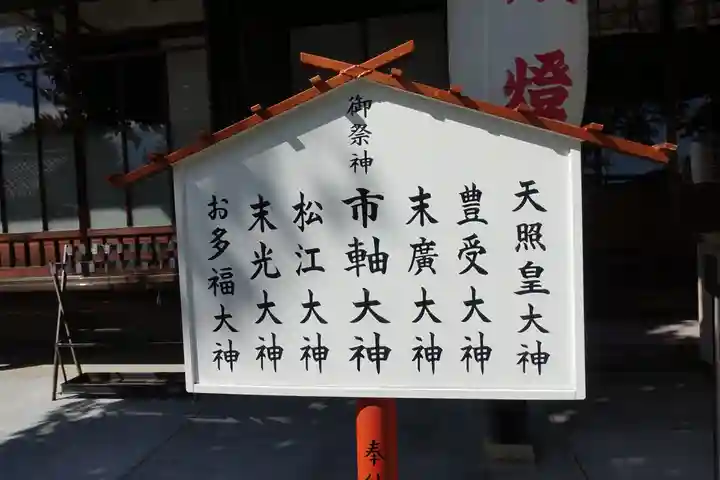 御祭神
天照皇大神
豊受大神
末廣大神
市軸大神
松江大神
末光大神
お多福大神
燈
奉